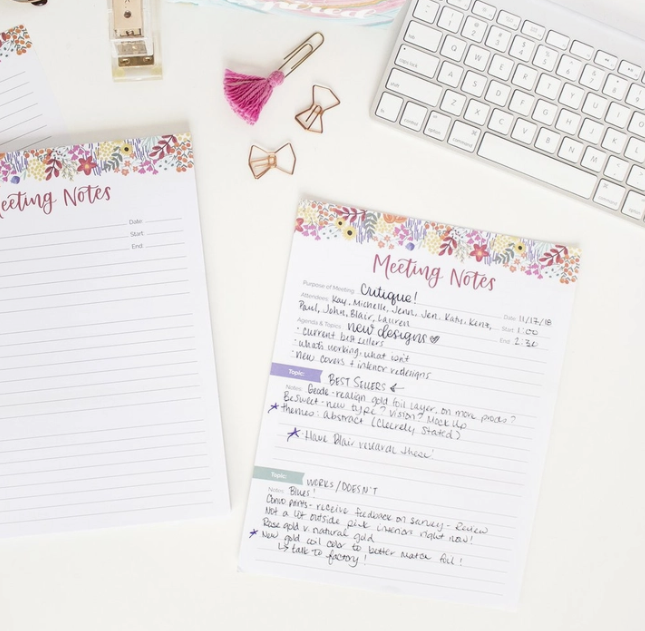 Meeting Notes
Date:
Start:
End:
Meeting Notes
Purpose of Meeting: Critique!
Date: 11/17/18
Attendees: Kay, Michelle, Jenn, Jen, Katy, Kent,
Start: 1:00
Paul, John, Blair, Lauren
End: 2:30
Agenda & Topics: new designs
· current best sellers
· what's working, what isn't
· new covers + interior redesigns
Topic: BEST SELLERS
Notes: realign gold foil layer, on more prods?
BeSweet - new type? vision? Mock Up
Themes: Abstract (Clearly Stated)
· Have Blair research these!
Topic: WORKS/DOESN'T
Notes: Blues!
Convo prints - receive feedback on survey - Review
Not a lot outside pink interiors right now!
Rose gold v. natural gold
New gold coil color to better match foil!
↳ talk to factory!
option
command
command
option